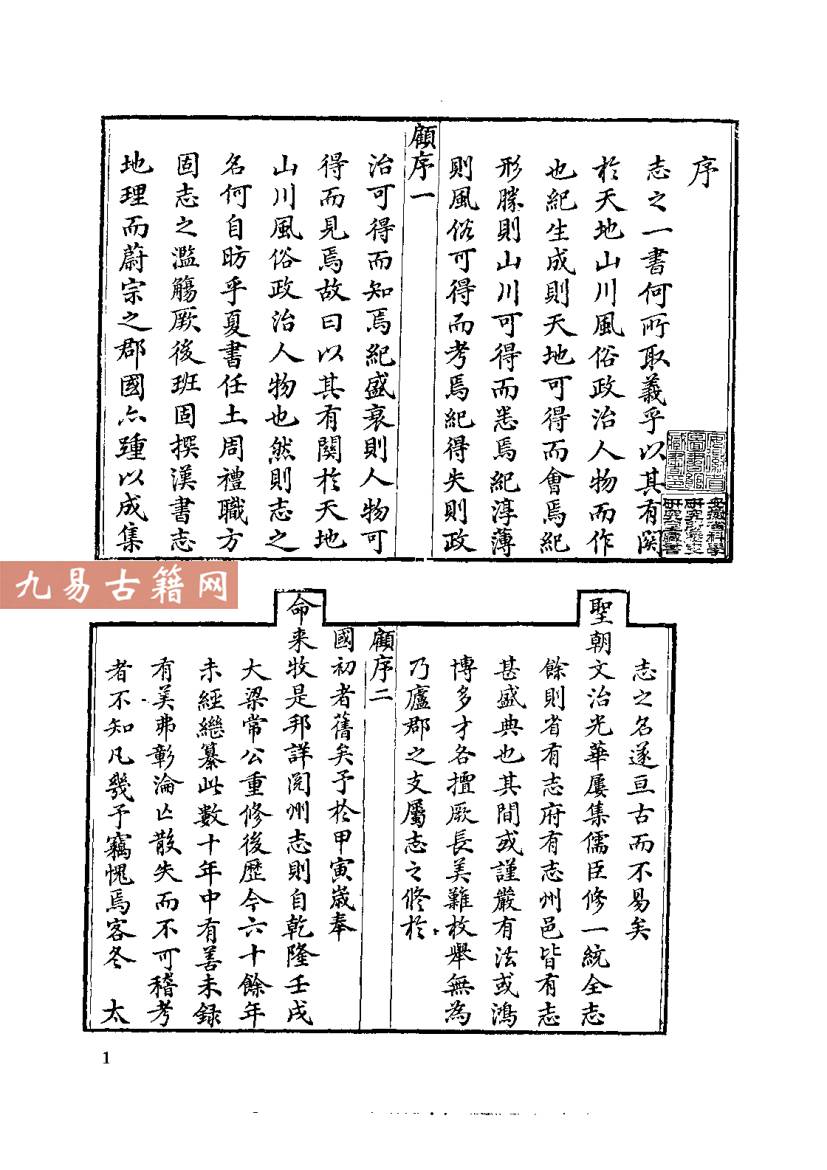 序
志之一書何所取義乎以其有関
於天地山川風俗政治人物而作
也紀生成則天地可得而會焉紀
形勝則山川可得而悉焉紀淳薄
則風俗可得而考焉紀得失則政
顧序一
治可得而知焉紀盛衰則人物可
得而見焉故曰以其有關於天地
山川風俗政治人物也然則志之
名何自昉乎夏書任土周禮職方
固志之濫觴厥後班固撰漢書志
地理而蔚宗之郡國亦踵以成集
九易古籍网
志之名遂亘古而不易矣
聖朝文治光華屢集儒臣修一統全志
餘則省有志府有志州邑皆有志
甚盛典也其間或謹嚴有法或鴻
博多才各擅厥長美難枚舉無為
乃廬郡之支屬志之修於
顧序二
國初者舊矣予於甲寅嵗奉
命来牧是邦詳閲州志則自乾隆壬戌
大梁常公重修後歴今六十餘年
未經繼纂此數十年中有善未録
有美弗彰淪亡散失而不可稽考
者不知凡幾予竊愧焉客冬 太
1